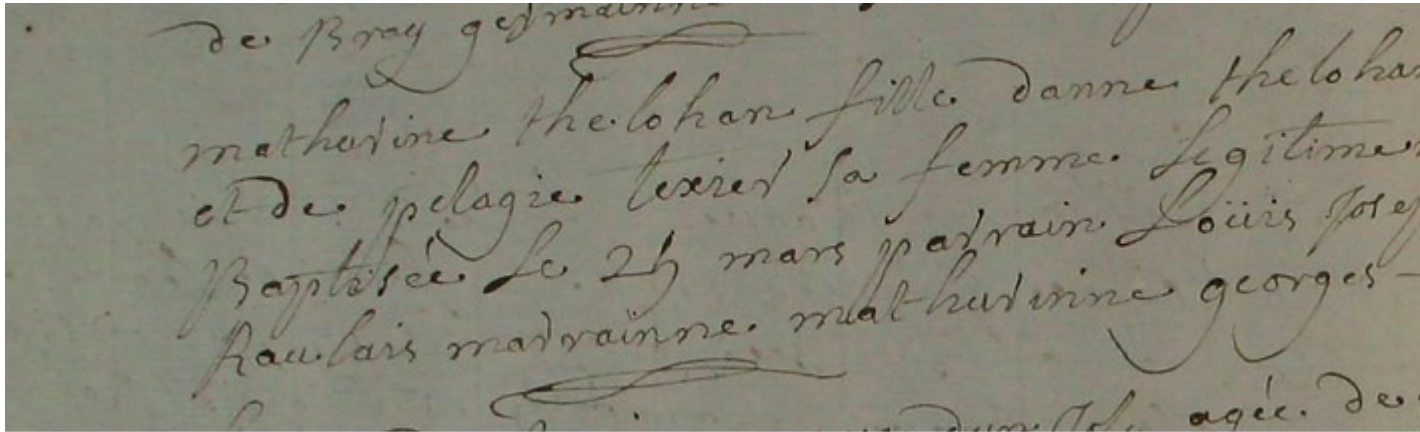 de Bray germainne
mathurine thelohan fille danne thelohan
et de pelagie texier sa femme Legitime
Baptisée Le 25 mars parrain Loüis Josep
Raulais marrainne mathurinne georges
agée de